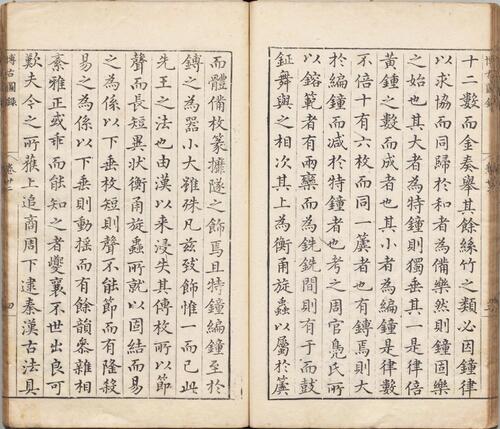 十二數而金奏舉其餘絲竹之類必因鐘律
以求協而同歸於和者為備樂然則鐘固樂
之始也其大者為特鐘則獨垂其一是律倍
黃鍾之數而成者也其小者為編鐘是律數
不倍十有六枚而同一簴者也有鎛焉則大
於編鐘而減於特鐘者也考之周官鳧氏所
以鎔範者有兩欒而為銑銑間則有于而鼓
鉦舞與之相次其上為衡甬旋蟲以屬於簴
而體備枚篆攠隧之飾焉且特鐘編鐘至於
鎛之為器小大雖殊凡茲致飾惟一而已此
先王之法也由漢以來浸失其傳枚所以節
聲而長短異狀衡甬旋蟲所就以固結而易
之為係以下垂枚短則聲不能節而有隆殺
易之為係以下垂則動搖而有餘韻叅雜相
紊雅正或乖而能知之者夔襄不世出良可
歎夫今之所襍上追商周下逮秦漢古法具
博古圖錄
卷廿二
四